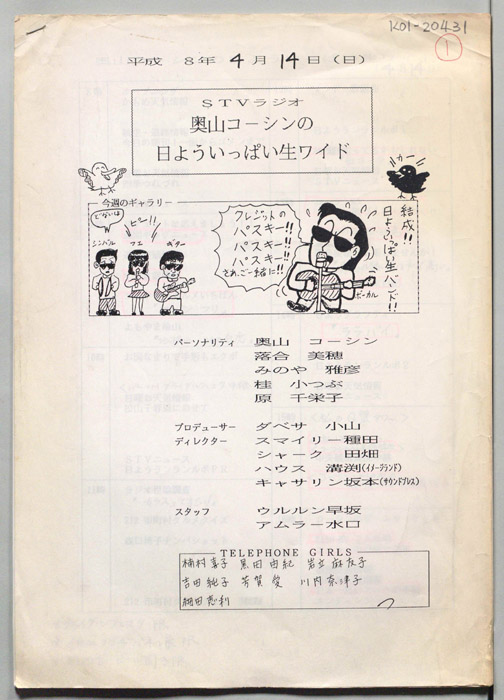 K01-20431
①
平成 8年 4月 14日(日)
STVラジオ
奥山コーシンの
日よういっぱい生ワイド
カー
今週のギャラリー
ピー!!
シンバル
マエ
ギター
クレジットの
パスキー!!
パスキー!!
パスキー!!
さあ、ご一緒に!!
結成!!
日よういっぱい生バンド!!
ボーカル
パーソナリティ 奥山 コーシン
落合 美穂
みのや 雅彦
桂 小つぶ
原 千栄子
プロデューサー ダベサ 小山
ディレクター スマイリー種田
シャーク 田畑
ハウス 溝渕(イメージランド)
キャサリン坂本(サウンドプレス)
スタッフ ウルルン早坂
アムラー水口
TELEPHONE GIRLS
楠村喜子 黒田由紀 岩立麻友子
吉田純子 芳賀愛 川内奈津子
細田恵利